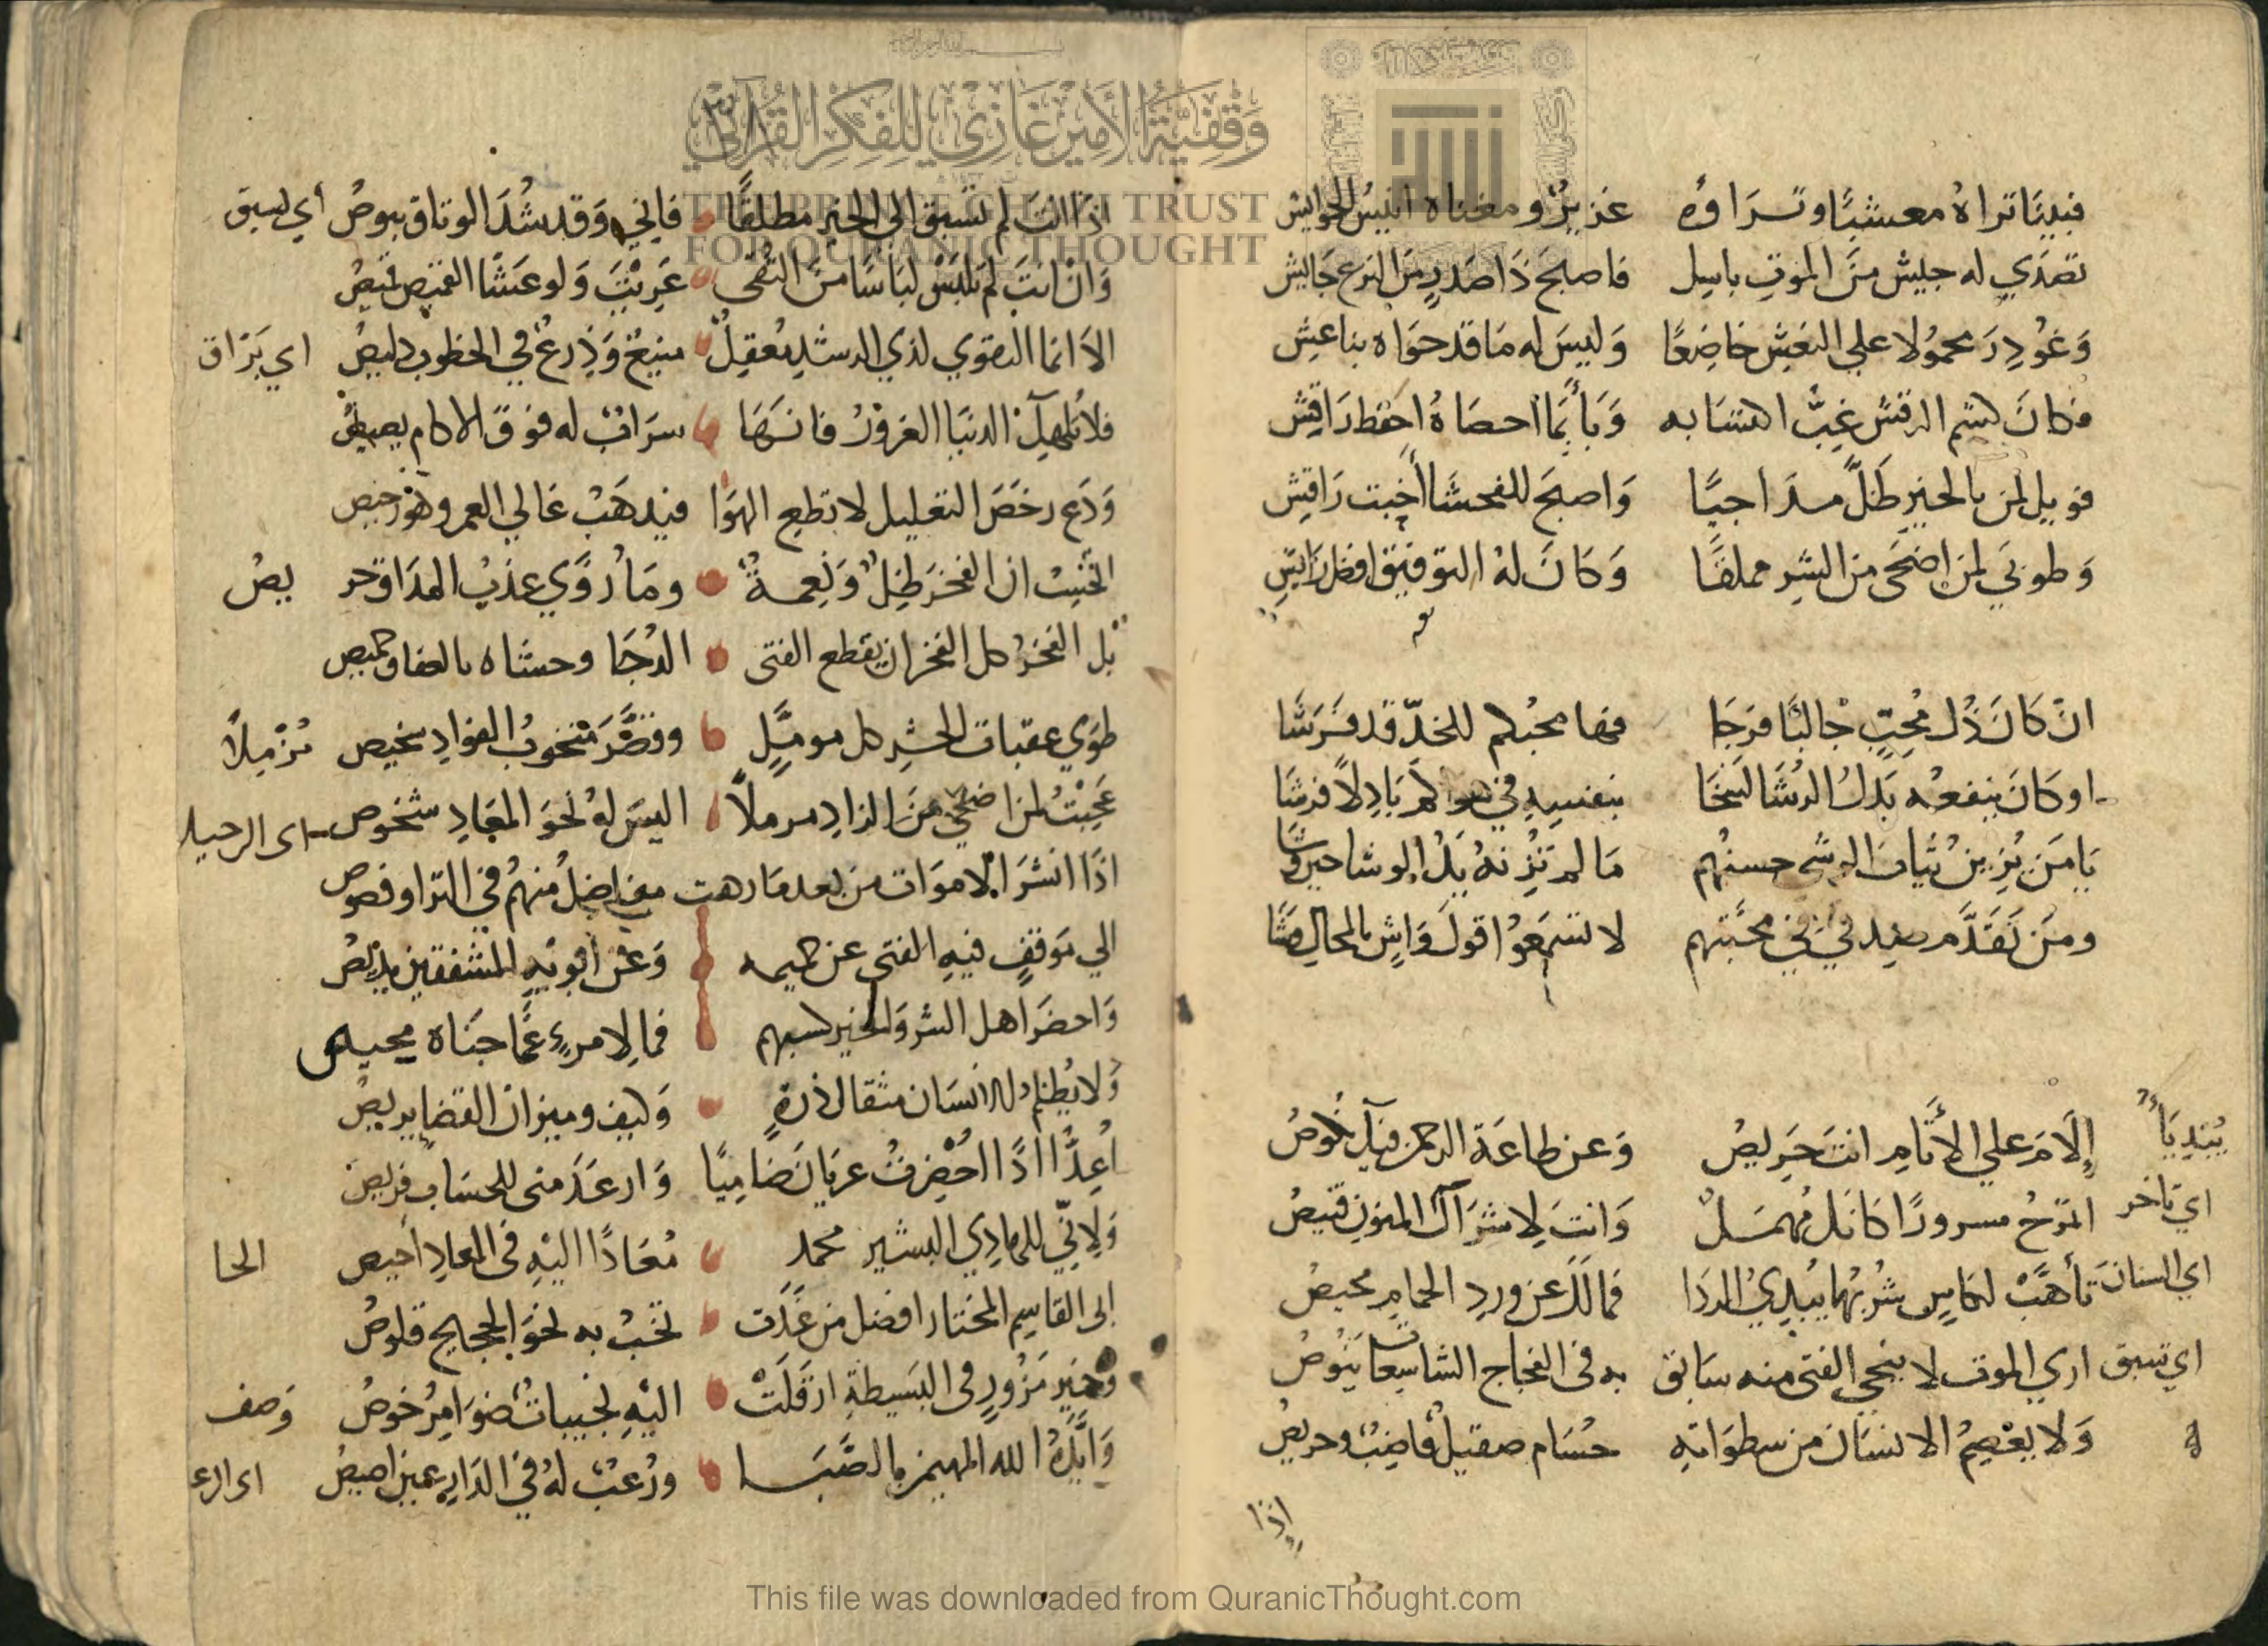 فبينا تراه معشبًا وتراؤه عزيزٌ ومغناه أنيسُ الجوايش
تصدي له جيش منَ الموتِ باسل فاصبحَ ذا صَدرٍ منَ النزع جَايش
وَغُودِرَ محمُولا علي النعش خاضِعًا وَليسَ له مَا قد حوَاه بناعِش
فكانَ كشم الرقش غبَّ اكتسابه وَيا بما احصاهُ احفظ رَاقِش
فويل لمن بالخيرِ ظلَّ مداجيًا وَاصبحَ للفحشا أخبت رَاقِش
وَطوبَي لمن اضحَى من الشر مملقًا وَكانَ لهُ التوفيق افضل رَايش
ان كانَ ذُل مُحِبٍّ جالبًا فرَجَا فها محبُكم للخدّ قد فرَشَا
او كانَ ينفعُه بَذلُ الرُشَا لسَخَا بنفسِهِ في باذلاً فرشَا
يَا مَن يُزينُ ثيابَ الوشي حسنُهم مَا لم تزِنهُ يَدُ الوشا حين وشَا
ومَن تَقَدَّم صِدقي في محبَّتهم لا تسمَعُوا قولَ وَاشٍ بالمحالِ مشَا
إلَامَ علي الأثَامِ انتَ حَرِيصُ وَعن طاعَة الرحمن فيك نكُوصُ
اتمرَحُ مسرورًا كانك مُهمَلٌ وَانتَ لاشرَاك المنونِ قنيصُ
تأهَّبْ لكاسٍ شربُها يُبدِيُ الردَا فما لك عن وردِ الحمامِ محيصُ
اي تسبق
اري الموت لا ينجي الفتى منه سَابق به في الفجاج الشاسِعات يَنُوصُ
وَلا يعْصِمُ الانسَانَ من سطوَاتهِ حُسَام صقيلٌ قاضِبٌ وحريصُ
إذا
اذا انتَ لم تسبق الي الخير مطلقًا فاني وَقد شُدَ الوثاق يبوصُ أي يسبق
وَانْ انتَ لم تلبَسْ لباسًا منَ التقى عَرِيْتَ وَلو غشّا القميص قميصُ
الاَ انما التقوي لذي الرشدِ مَعقِلٌ منيعٌ وَدِرعٌ في الخطوب دليصُ اي بَرَّاق
فلا تُلهِكَ الدنيَا الغرورُ فانهَا سرَابٌ له فوق الاكام بصيصُ
وَدَع رخَصَ التعليل لا تطعِ الهوَا فيذهَبْ غالي العمر وهوْ رخيص
اتحسِبُ ان الفخرَ ظِلٌّ وَنعِمةٌ ومَا رُوَّي عذبُ المذاق
بل الفخرُ كل الفخر ان يقطع الفتى الدُجَا وحشاه بالعفاف خميص
طوَي عقبات الحشرِ كل مومَّلٍ وقصَّرَ منخوبُ الفوادِ
عَجِبْتُ لمن اضحَي منَ الزادِ مرملاً اليسَ لهُ نحوَ المعَادِ شخوص
اذَا انشرَ الاموَات من بعد مَا رهت مفاصِلُ منهمُ في الترا وفصوص
الي مَوقفٍ فيهِ الفتى عن حميمه وَعن ابويهِ المشفقين يديصُ
وَاحضَرَ اهل الشر وَالخير كسبهم فما لامرءٍ عمَّا جنَاه محيص
وَلا يُظلم الانسَان مثقال ذرةٍ وَكيف وميزان القضا يريصُ
أعِدُّ اذَا احُضرتُ عريَانَ ضَاميًا وَارعَدَ منى للحسَابِ فريصُ
وَلائي للهادِي البشير محمد مُعَاذًا اليهِ في المعادِ احيص
الى القاسِم المختار افضل من غَدَت تخبُ به نحوَ الحجيج قلوصُ
وَخيرِ مَزُورٍ في البَسيطةِ ارقَلَتْ اليهِ نجيباتٌ ضوَامِرُ خوصُ وَصف
وَايَّدَهُ الله المهيمن بالصَّبَا ورُعبٌ لهُ في الدَارِعين اصيصُ
This file was downloaded from QuranicThought.com
وقفية الأمير غازي للفكر القرآني
THE PRINCE GHAZI TRUST
FOR QURANIC THOUGHT